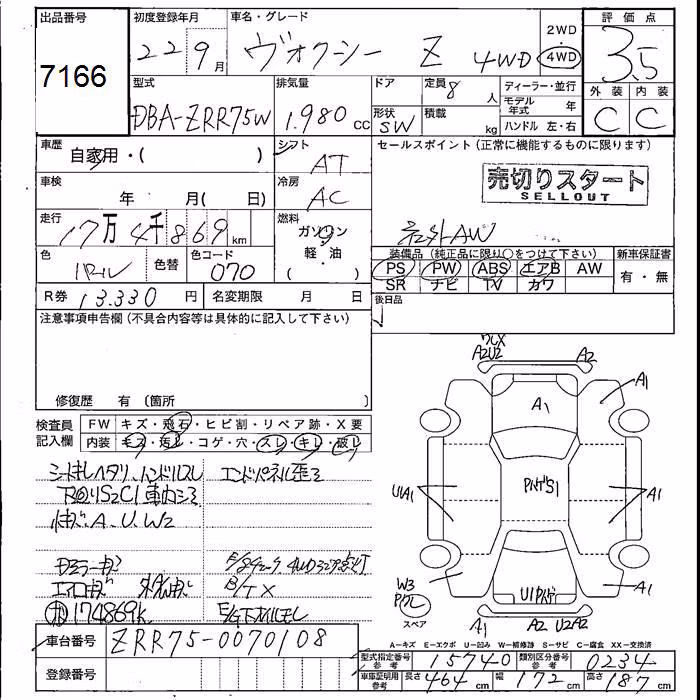 出品番号
7166
初度登録年月
22 9月
車名・グレード
ヴォクシー Z 4WD
2WD
・
4WD
評価点
3.5
外装 内装
C C
型式
DBA-ZRR75W
排気量
1.980 cc
ドア
形状
SW
定員 8 人
積載 kg
ディーラー・並行
モデル年式 年
ハンドル 左・右
車歴
自家用・( )
シフト
AT
車検
年 月( 日)
冷房
AC
走行
17万4千869km
燃料
ガソリン
軽・油
( )
色
色替
色コード
070
R券 13.330円
名変期限 月 日
セールスポイント(正常に機能するものに限ります)
売切りスタート
SELLOUT
社外AW
装備品(純正品に限り○をつけて下さい)
PS PW ABS エアB AW
SR ナビ TV カワ
新車保証書
有・無
後日品
注意事項申告欄(不具合内容等は具体的に記入して下さい)
修復歴 有〔箇所
検査員記入欄
FW キズ・飛石・ヒビ割・リペア跡・X要
内装 キズ・汚レ・コゲ・穴・スレ・キレ・破レ
シートキレヘタリ、ハンドルスレ
エンドパネル歪ミ
下回りS2C1 車内シミ
A.U.W2
B/TX
174869k
A2U2
A2
A1
A1
U1A1
A1
A1
W3
スペア
A1
A2
U2A2
A-キズ E-エクボ U-凹み W-補修跡 S-サビ C-腐食 XX-交換済
車台番号 ZRR75-0070108
登録番号
型式指定番号 参考 15740
類別区分番号 参考 0234
車庫証明用 参考 長さ 464cm 幅 172cm 高さ 187cm